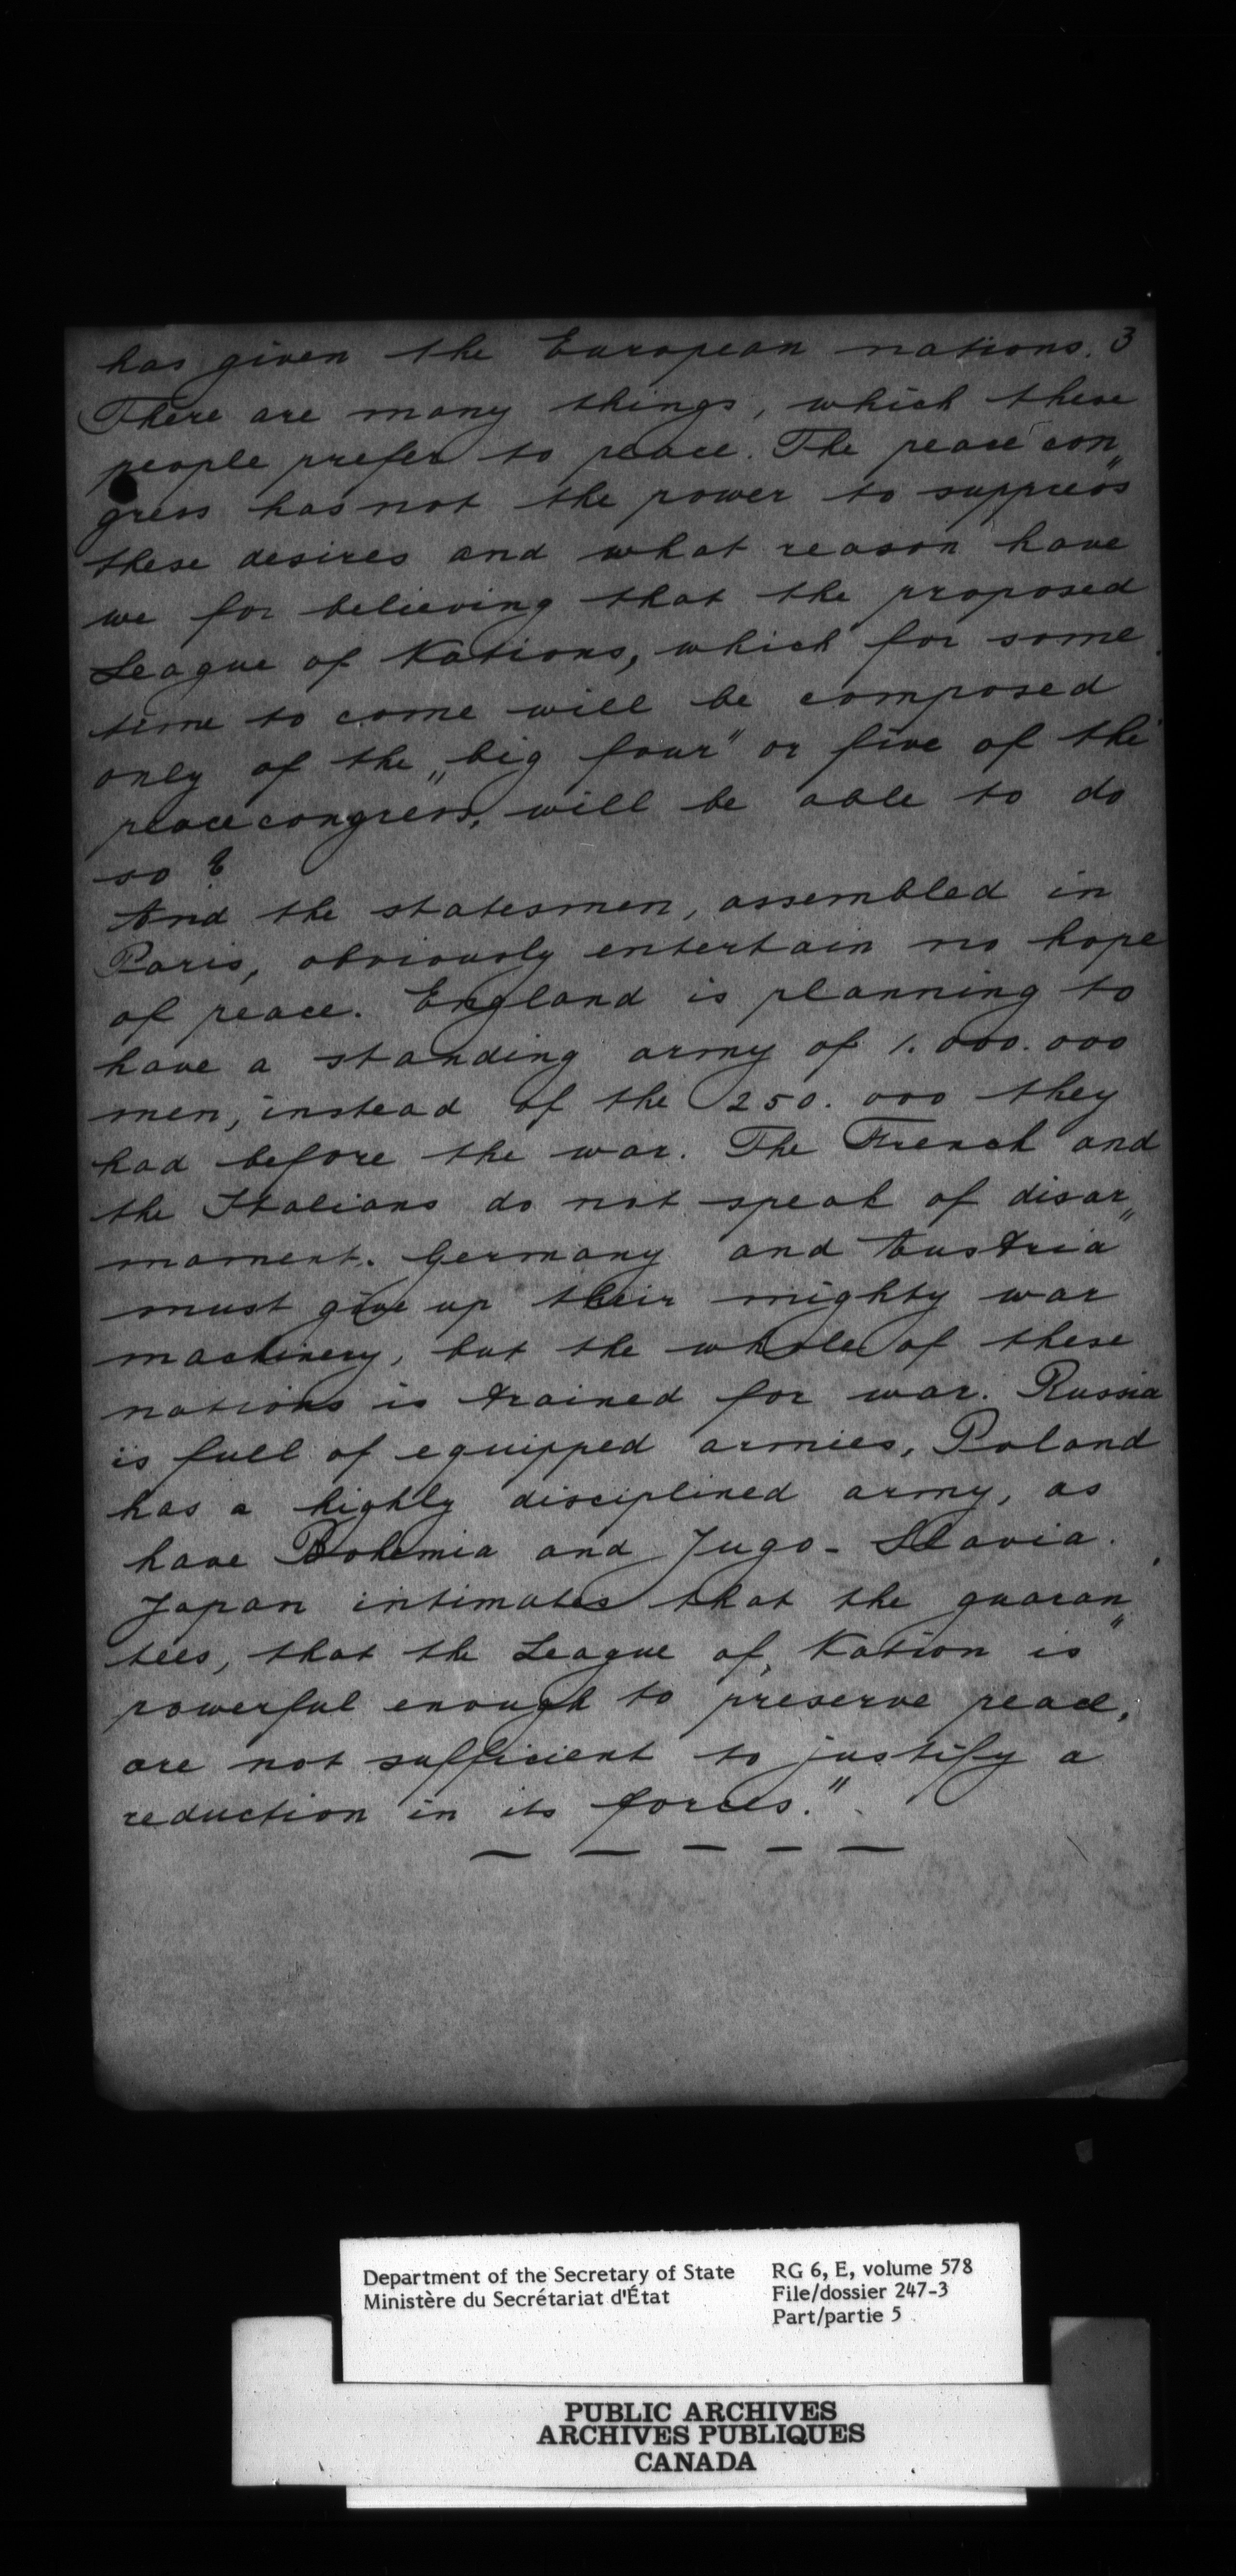 has given the European nations. 3
There are many things, which these
people prefer to peace. The peace con„
gress has not the power to suppress
these desires and what reason have
we for believing that the proposed
League of Nations, which for some
time to come will be composed
only of the „big four" or five of the
peacecongress, will be able to do
so?
And the statesmen, assembled in
Paris, obviously entertain no hope
of peace. England is planning to
have a standing army of 1.000.000
men, instead of the 250.000 they
had before the war. The French and
the Italians do not speak of disar„
mament. Germany and Austria
must give up their mighty war
machinery, but the whole of these
nations is trained for war. Russia
is full of equipped armies, Poland
has a highly disciplined army, as
have Bohemia and Jugo-Slavia.
Japan intimates that the guaran„
tees, that the League of Nation is
powerful enough to preserve peace,
are not sufficient to justify a
reduction in its forces."
Department of the Secretary of State
Ministère du Secrétariat d'État
RG 6, E, volume 578
File/dossier 247-3
Part/partie 5
PUBLIC ARCHIVES
ARCHIVES PUBLIQUES
CANADA